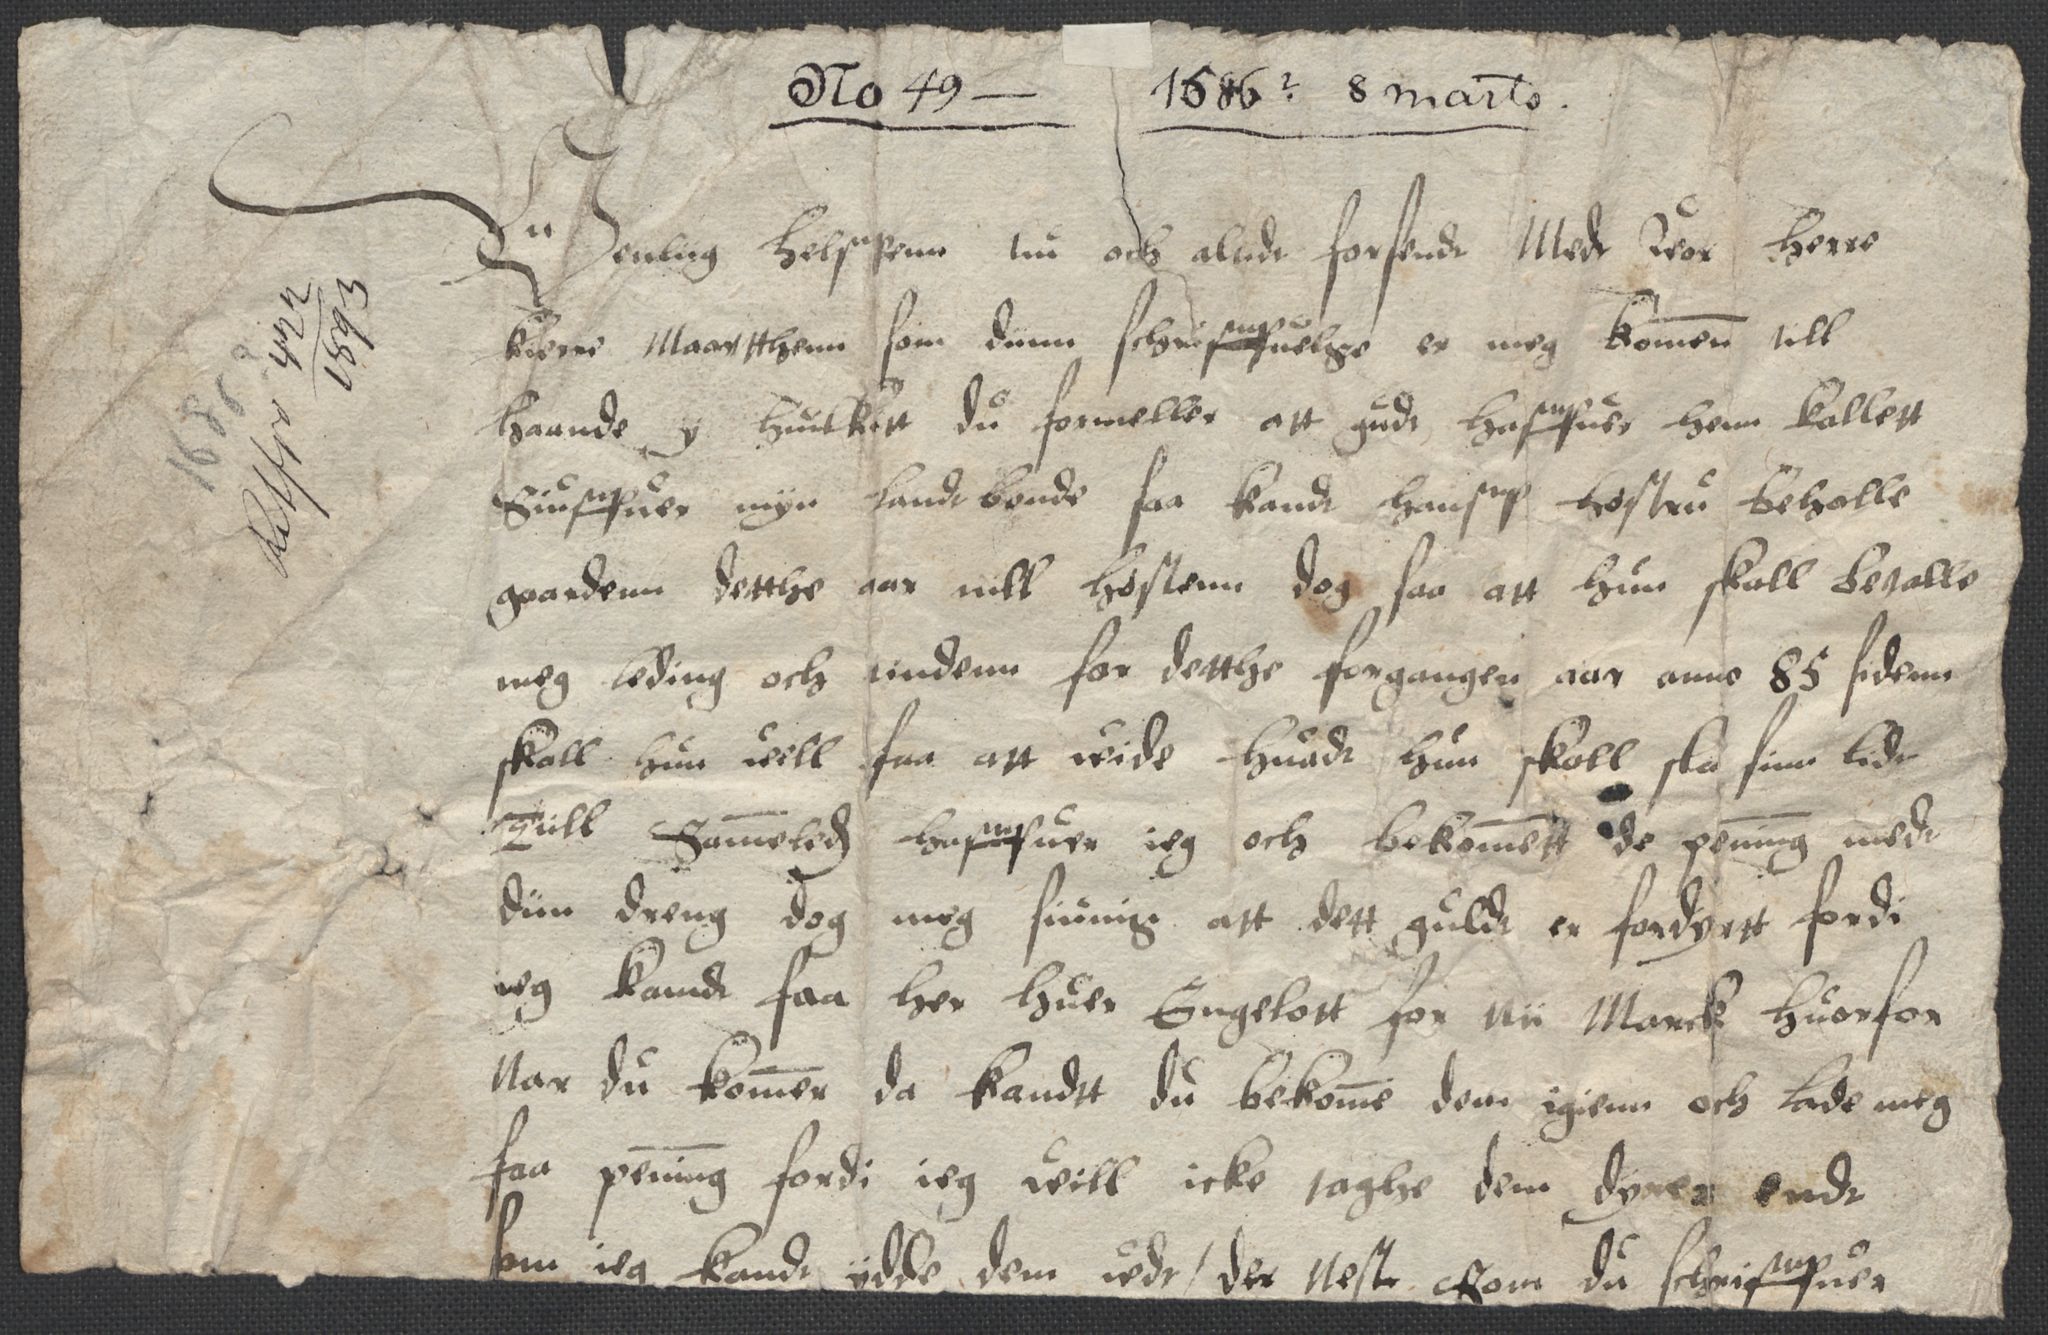 No 49 — 1686? 8 marto.
Venlig helssenn nu och altidt forsendt Medt Vor Herre
kierre Maartthenn som dinn schriffuelsze er meg komen till
haande y huilkitt du formeller att gudt haffuer henn kallett
Siuffuer myn landtbonde saa kandt hanss høstru beholle
gaardenn detthe aar till høstenn dog saa att hun skall betalle
meg leding och tindenn for detthe forgangen aar anno 85 sidenn
skall hun vell faa att vide huadt hun skall sla sinn lidt
Till Sameled haffuer ieg och bekomett de pening medt
din dreng dog meg siunis att dett guldt er fordyrtt fordi
ieg kandt faa her huer Engelott for nii Marck huorfor
Nar du komer da kandtt du bekome dem igienn och lade meg
faa pening fordi ieg vill icke taghe dem dyrer endt
som ieg kandt ydde dem vdt / der nest som du schriffuer
1686?
422
1893